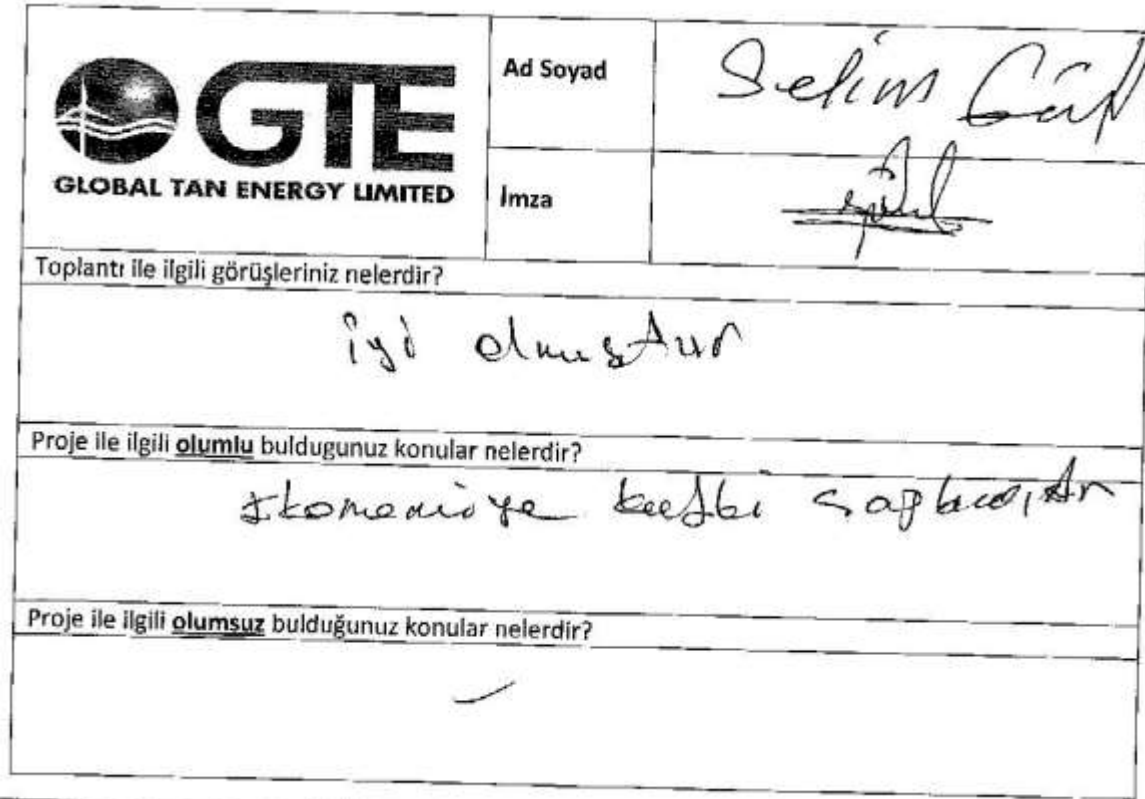 GTE
GLOBAL TAN ENERGY LIMITED
Ad Soyad
Selim
İmza
Toplantı ile ilgili görüşleriniz nelerdir?
iyi olmuştur
Proje ile ilgili olumlu buldugunuz konular nelerdir?
Ekonomiye katkı
Proje ile ilgili olumsuz bulduğunuz konular nelerdir?